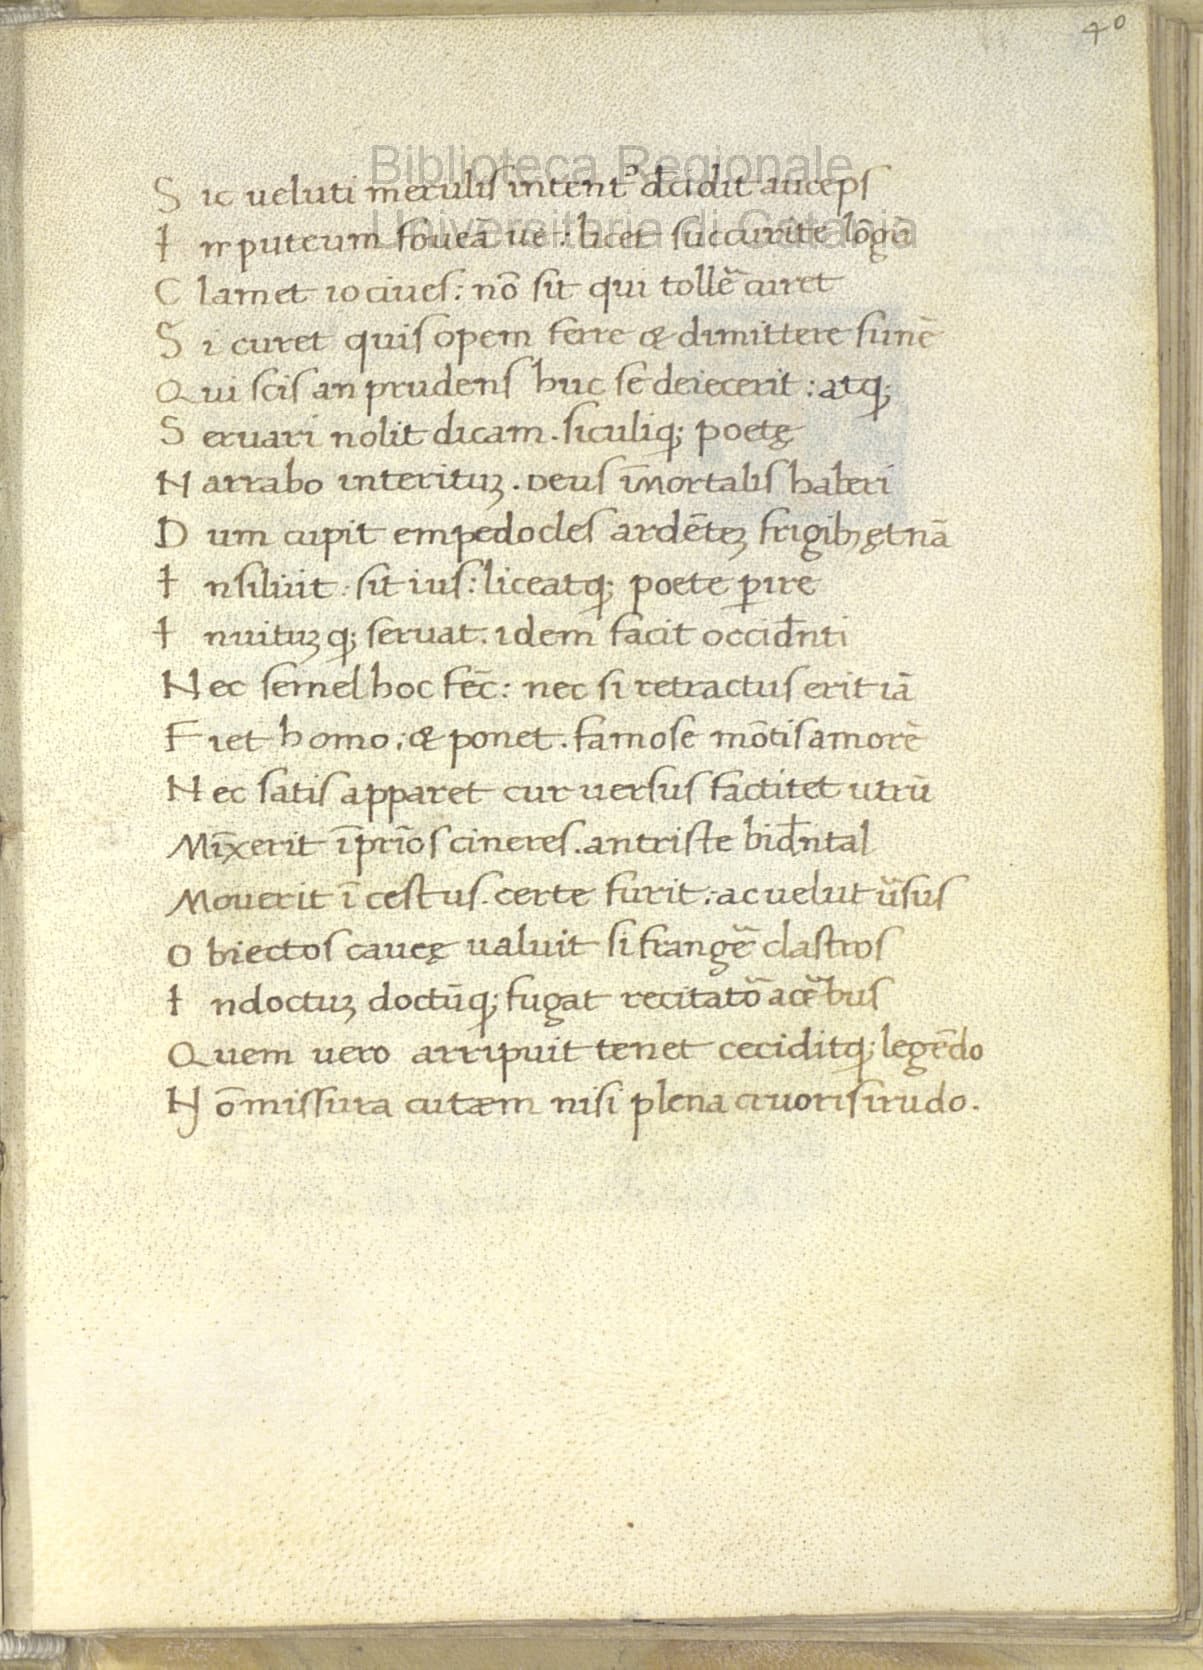 40
Biblioteca Regionale
Universitaria di Catania
Sic ueluti merulis intentꝰ dc̄idit auceps
In puteum foueā ue : licet succurite lōgū
Clamet io ciues : nō sit qui tollē curet
Si curet quis opem ferre & dimittere funē
Qui scis an prudens huc se deiecerit : atq;
Seruari nolit dicam. siculiq; poetę
Narrabo interituꝫ. Deus īmortalis haberi
Dum cupit empedocles ardēteꝫ frigibꝫ ętnā
Insiliuit. sit ius : liceatq; poete ꝑire
Inuituꝫq; seruat. idem facit occidn̄ti
Nec semel hoc fēc : nec si retractus erit iā
Fiet homo ; & ponet. famose mōtis amorē
Nec satis apparet cur uersus factitet utrū
Mīxerit ī prīos cineres. an triste bidn̄tal
Mouerit ī cestus. certe furit ; ac uelut ūsus
Obiectos caueę ualuit si frangē clastros
Indoctuꝫ doctūq; fugat recitatō acēbus
Quem uero arripuit tenet ceciditq; legēdo
Nō missura cutæm nisi plena cruoris irudo.